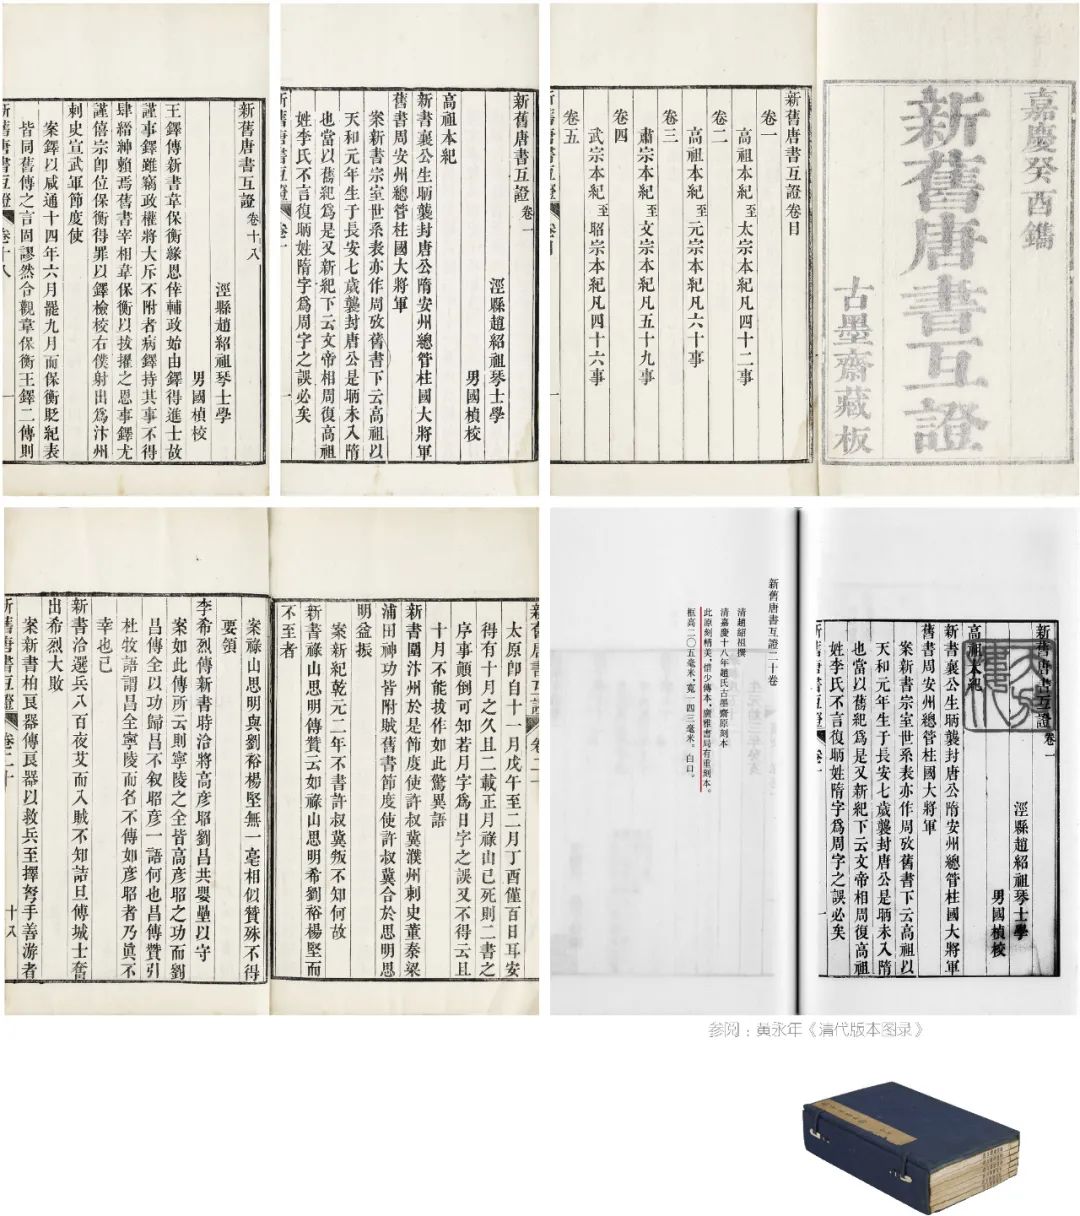 新舊唐書互證 卷十八
涇縣趙紹祖琴士學
男國楨校
王鐸傳新書韋保衡緣恩倖輔政始由鐸得進士故
謹事鐸雖竊政權將大斥不附者病鐸持其事不得
肆縉紳賴焉舊書宰相韋保衡以拔擢之恩事鐸尤
謹僖宗卽位保衡得罪以鐸檢校右僕射出爲汴州
刺史宣武軍節度使
案鐸以咸通十四年六月罷九月而保衡貶紀表
皆同舊傳之言固謬然合觀韋保衡王鐸二傳則
新舊唐書互證 卷十八 一
新舊唐書互證 卷一
涇縣趙紹祖琴士學
男國楨校
高祖本紀
新書襄公生昞襲封唐公隋安州總管柱國大將軍
舊書周安州總管柱國大將軍
案新書宗室世系表亦作周攷舊書下云高祖以
天和元年生于長安七歲襲封唐公是昞未入隋
也當以舊紀爲是又新紀下云文帝相周復高祖
姓李氏不言復昞姓隋字爲周字之誤必矣
新舊唐書互證 卷一 一
新舊唐書互證卷目
卷一
高祖本紀至太宗本紀凡四十二事
卷二
高宗本紀至元宗本紀凡六十事
卷三
肅宗本紀至文宗本紀凡五十九事
卷四
武宗本紀至昭宗本紀凡四十六事
卷五
嘉慶癸酉鐫
新舊唐書互證
古墨齋藏板
太原卽自十一月戊午至二月丁酉僅百日耳安
得有十月之久且二載正月祿山已死則二書之
序事顚倒可知若月字爲日字之誤又不得云且
十月不能拔作如此驚異語
新書圍汴州於是節度使許叔冀濮州刺史董秦梁
浦田神功皆附賊舊書節度使許叔冀合於思明思
明益振
案新紀乾元二年不書許叔冀叛不知何故
新書祿山思明傳贊云如祿山思明希劉裕楊堅而
不至者
案祿山思明與劉裕楊堅無一毫相似贊殊不得
要領
李希烈傳新書時洽將高彥昭劉昌共嬰壘以守
案如此傳所云則寧陵之全皆高彥昭之功而劉
昌傳全以功歸昌不叙昭彥一語何也昌傳贊引
杜牧語謂昌全寧陵而名不傳如彥昭者乃眞不
幸也已
新書洽選兵八百夜艾而入賊不知詰旦傅城士奮
出希烈大敗
案新書柏良器傳良器以救兵至擇弩手善游者
新舊唐書互證 卷二十 十八
新舊唐書互證二十卷
清趙紹祖撰
清嘉慶十八年趙氏古墨齋原刻本
此原刻精美、惜少傳本、廣雅書局有重刻本。
框高二〇五毫米，寬一四三毫米。白口。
新舊唐書互證 卷一
涇縣趙紹祖琴士學
男國楨校
高祖本紀
新書襄公生昞襲封唐公隋安州總管柱國大將軍
舊書周安州總管柱國大將軍
案新書宗室世系表亦作周攷舊書下云高祖以
天和元年生于長安七歲襲封唐公是昞未入隋
也當以舊紀爲是又新紀下云文帝相周復高祖
姓李氏不言復昞姓隋字爲周字之誤必矣
新舊唐書互證 卷一 一
参阅：黄永年《清代版本图录》